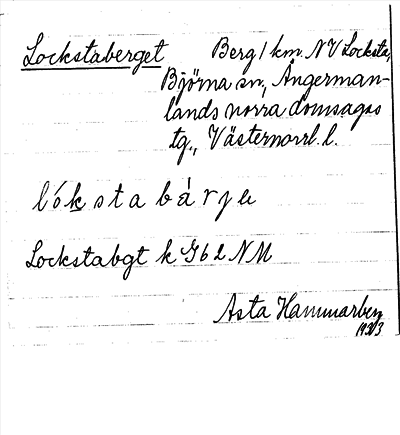 Lockstaberget Berg 1 km. NV Locksta,
Björna sn, Ångerman-
lands norra domsagas
tg., Västernorrl. l.
lóksta bárje
Lockstabgt k G62NM
Asta Hammarberg